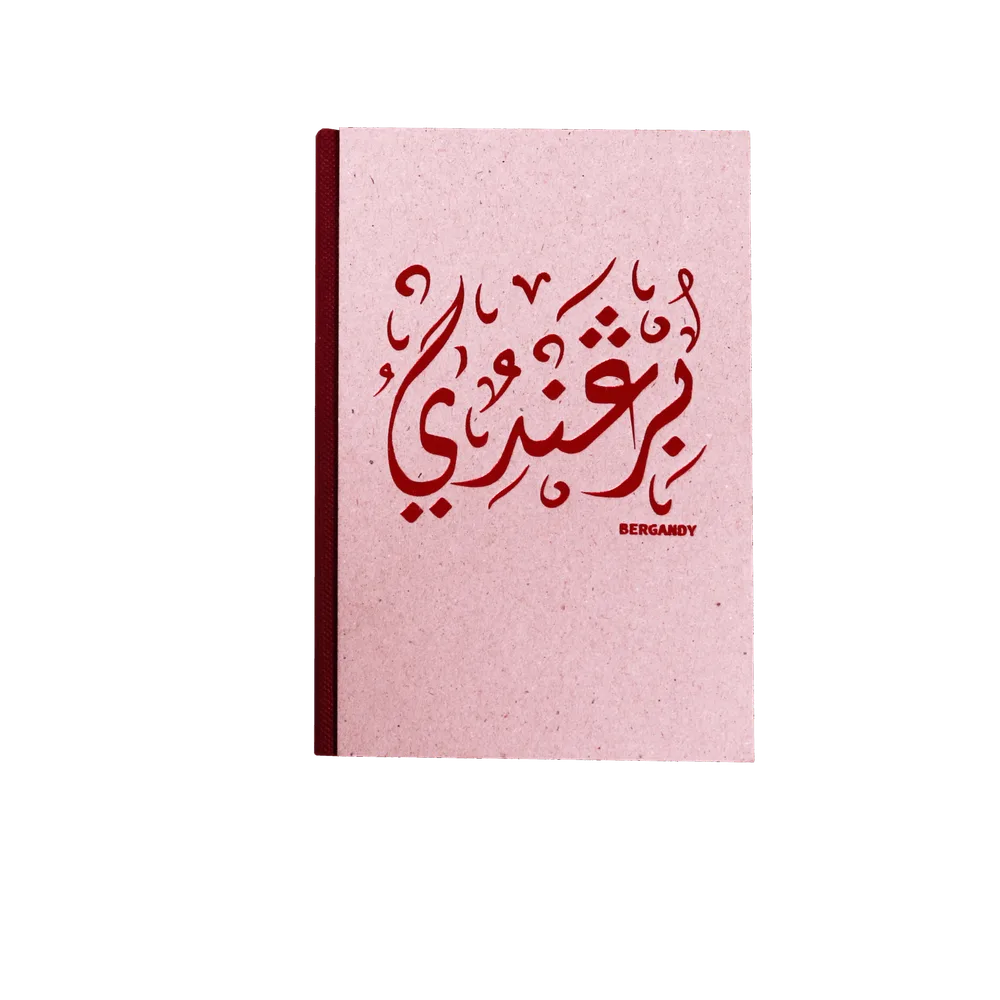 بُرڠَندِي
BERGANDY